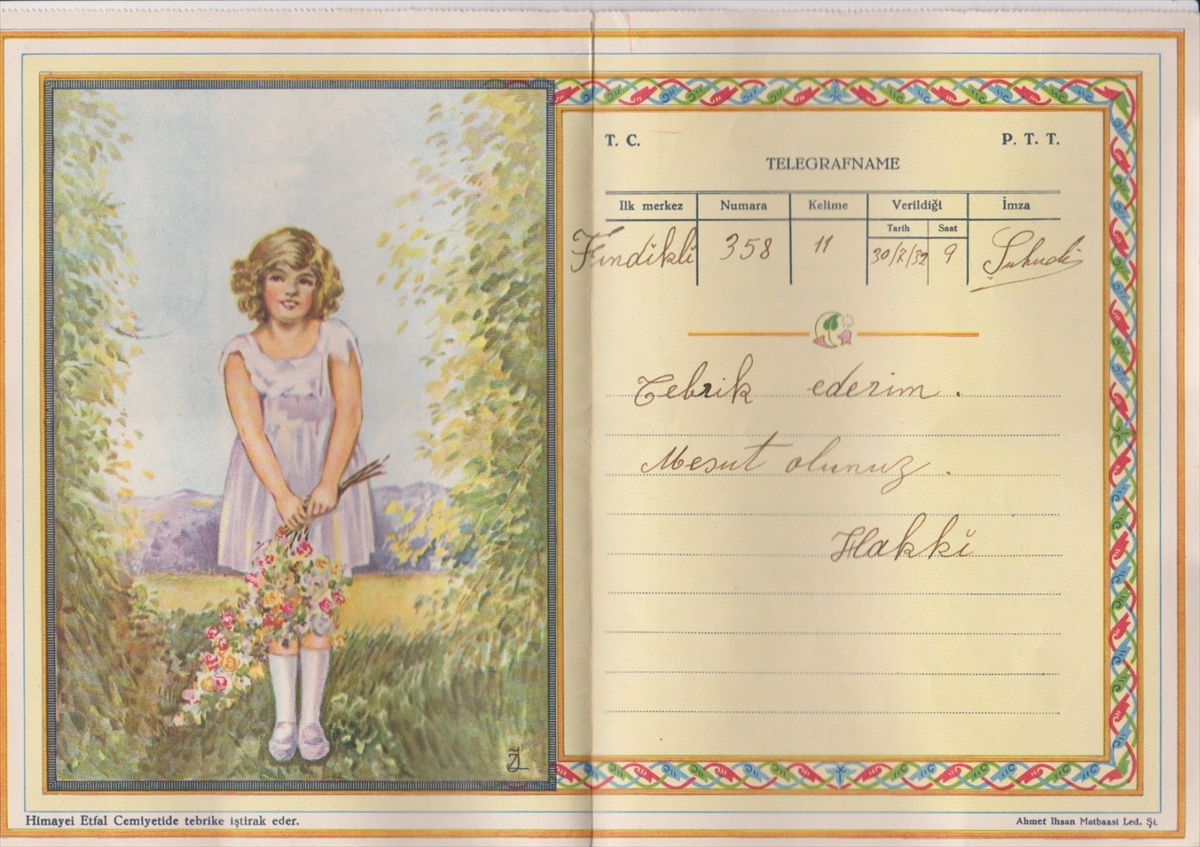 T. C.
P. T. T.
TELEGRAFNAME
Ilk merkez Numara Kelime Verildiği İmza
Tarih Saat
Fındıklı 358 11 30/7/32 9
Tebrik ederim.
Mesut olunuz.
Hakkı
Himayei Etfal Cemiyetide tebrike iştirak eder.
Ahmet Ihsan Matbaasi Led. Şi.